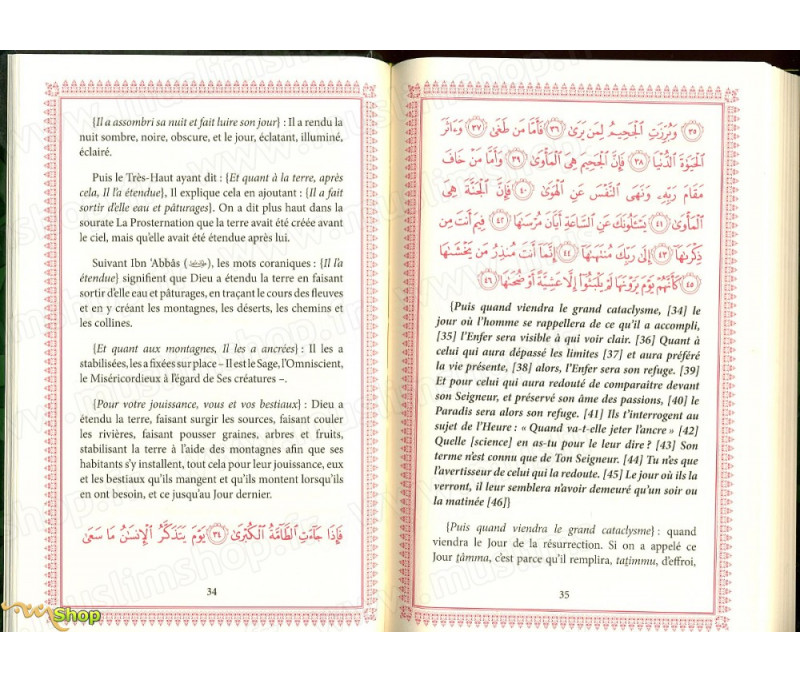 {Il a assombri sa nuit et fait luire son jour} : Il a rendu la
nuit sombre, noire, obscure, et le jour, éclatant, illuminé,
éclairé.
Puis le Très-Haut ayant dit : {Et quant à la terre, après
cela, Il l'a étendue}, Il explique cela en ajoutant : {Il a fait
sortir d'elle eau et pâturages}. On a dit plus haut dans la
sourate La Prosternation que la terre avait été créée avant
le ciel, mais qu'elle avait été étendue après lui.
Suivant Ibn 'Abbâs, les mots coraniques : {Il l'a
étendue} signifient que Dieu a étendu la terre en faisant
sortir d'elle eau et pâturages, en traçant le cours des fleuves
et en y créant les montagnes, les déserts, les chemins et
les collines.
{Et quant aux montagnes, Il les a ancrées} : Il les a
stabilisées, les a fixées sur place – Il est le Sage, l'Omniscient,
le Miséricordieux à l'égard de Ses créatures –.
{Pour votre jouissance, vous et vos bestiaux} : Dieu a
étendu la terre, faisant surgir les sources, faisant couler
les rivières, faisant pousser graines, arbres et fruits,
stabilisant la terre à l'aide des montagnes afin que ses
habitants s'y installent, tout cela pour leur jouissance, eux
et les bestiaux qu'ils mangent et qu'ils montent lorsqu'ils
en ont besoin, et ce jusqu'au Jour dernier.
فَإِذَا جَآءَتِ ٱلطَّآمَّةُ ٱلْكُبْرَىٰ ٣٤ يَوْمَ يَتَذَكَّرُ ٱلْإِنسَٰنُ مَا سَعَىٰ
34
٣٥ وَبُرِّزَتِ ٱلْجَحِيمُ لِمَن يَرَىٰ ٣٦ فَأَمَّا مَن طَغَىٰ ٣٧ وَءَاثَرَ
ٱلْحَيَوٰةَ ٱلدُّنْيَا ٣٨ فَإِنَّ ٱلْجَحِيمَ هِىَ ٱلْمَأْوَىٰ ٣٩ وَأَمَّا مَنْ خَافَ
مَقَامَ رَبِّهِۦ وَنَهَى ٱلنَّفْسَ عَنِ ٱلْهَوَىٰ ٤٠ فَإِنَّ ٱلْجَنَّةَ هِىَ
ٱلْمَأْوَىٰ ٤١ يَسْـَٔلُونَكَ عَنِ ٱلسَّاعَةِ أَيَّانَ مُرْسَىٰهَا ٤٢ فِيمَ أَنتَ مِن
ذِكْرَىٰهَآ ٤٣ إِلَىٰ رَبِّكَ مُنتَهَىٰهَآ ٤٤ إِنَّمَآ أَنتَ مُنذِرُ مَن يَخْشَىٰهَا
٤٥ كَأَنَّهُمْ يَوْمَ يَرَوْنَهَا لَمْ يَلْبَثُوٓا۟ إِلَّا عَشِيَّةً أَوْ ضُحَىٰهَا ٤٦
{Puis quand viendra le grand cataclysme, [34] le
jour où l'homme se rappellera de ce qu'il a accompli,
[35] l'Enfer sera visible à qui voir clair. [36] Quant à
celui qui aura dépassé les limites [37] et aura préféré
la vie présente, [38] alors, l'Enfer sera son refuge. [39]
Et pour celui qui aura redouté de comparaître devant
son Seigneur, et préservé son âme des passions, [40] le
Paradis sera alors son refuge. [41] Ils t'interrogent au
sujet de l'Heure : « Quand va-t-elle jeter l'ancre » [42]
Quelle [science] en as-tu pour le leur dire ? [43] Son
terme n'est connu que de Ton Seigneur. [44] Tu n'es que
l'avertisseur de celui qui la redoute. [45] Le jour où ils la
verront, il leur semblera n'avoir demeuré qu'un soir ou
la matinée [46]}
{Puis quand viendra le grand cataclysme} : quand
viendra le Jour de la résurrection. Si on a appelé ce
Jour ṭâmma, c'est parce qu'il remplira, taṭimmu, d'effroi,
35
www.muslimshop.fr
Shop